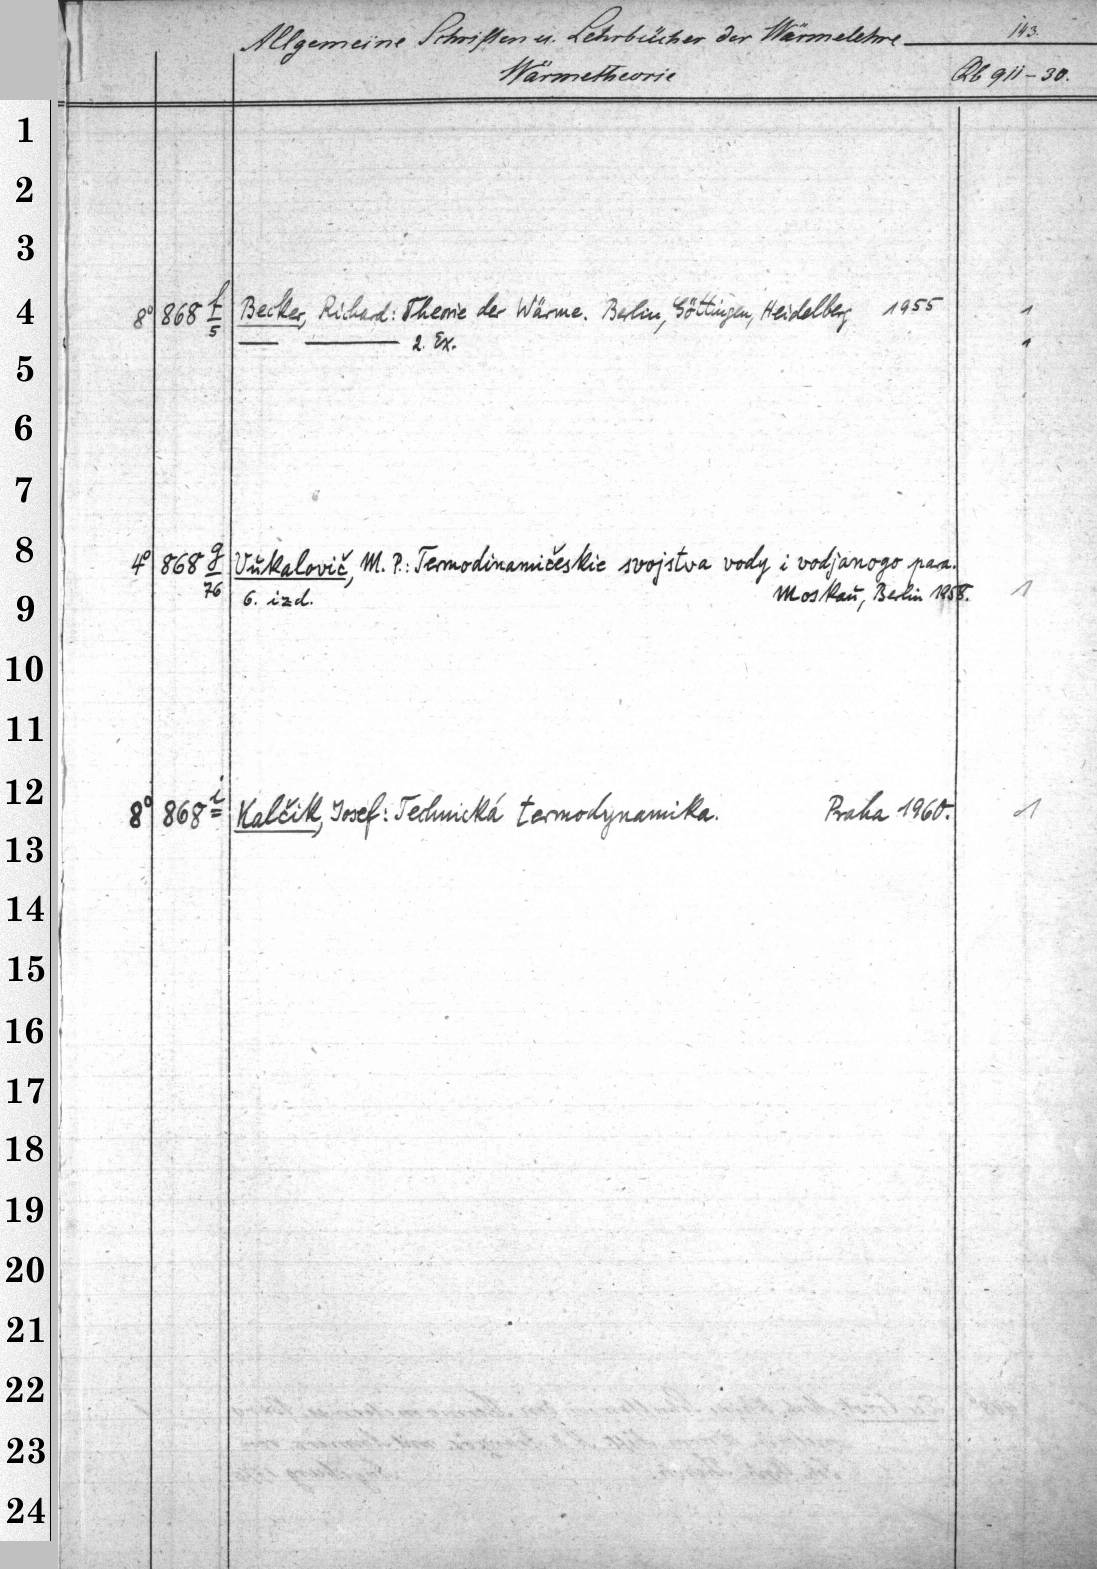 Allgemeine Schriften u. Lehrbücher der Wärmelehre 143.
Wärmetheorie Qb 911-30.
1
2
3
4
8° 868 f/5 Becker, Richard: Theorie der Wärme. Berlin, Göttingen, Heidelberg 1955 1
— — 2. Ex. 1
5
6
7
8
4° 868 g/76 Vukalovič, M. P.: Termodinamičeskie svojstva vody i vodjanogo para.
6. izd. Moskau, Berlin 1958. 1
9
10
11
12
8° 868 i Kalčik, Josef: Technická termodynamika. Praha 1960. 1
13
14
15
16
17
18
19
20
21
22
23
24